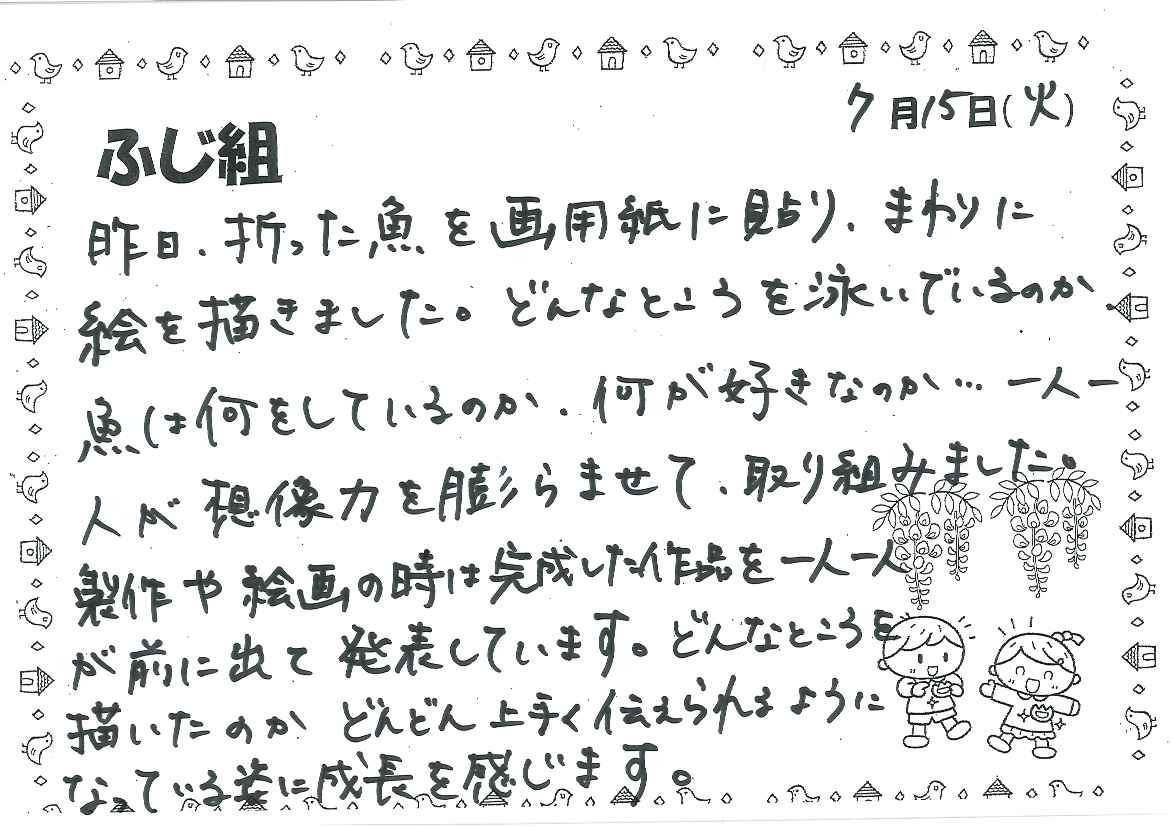 7月15日(火)
ふじ組
昨日、折った魚を画用紙に貼り、まわりに
絵を描きました。どんなところを泳いでいるのか、
魚は何をしているのか、何が好きなのか…一人一
人が想像力を膨らませて、取り組みました。
製作や絵画の時は完成した作品を一人一人
が前に出て発表しています。どんなところを
描いたのかどんどん上手く伝えられるように
なっている姿に成長を感じます。